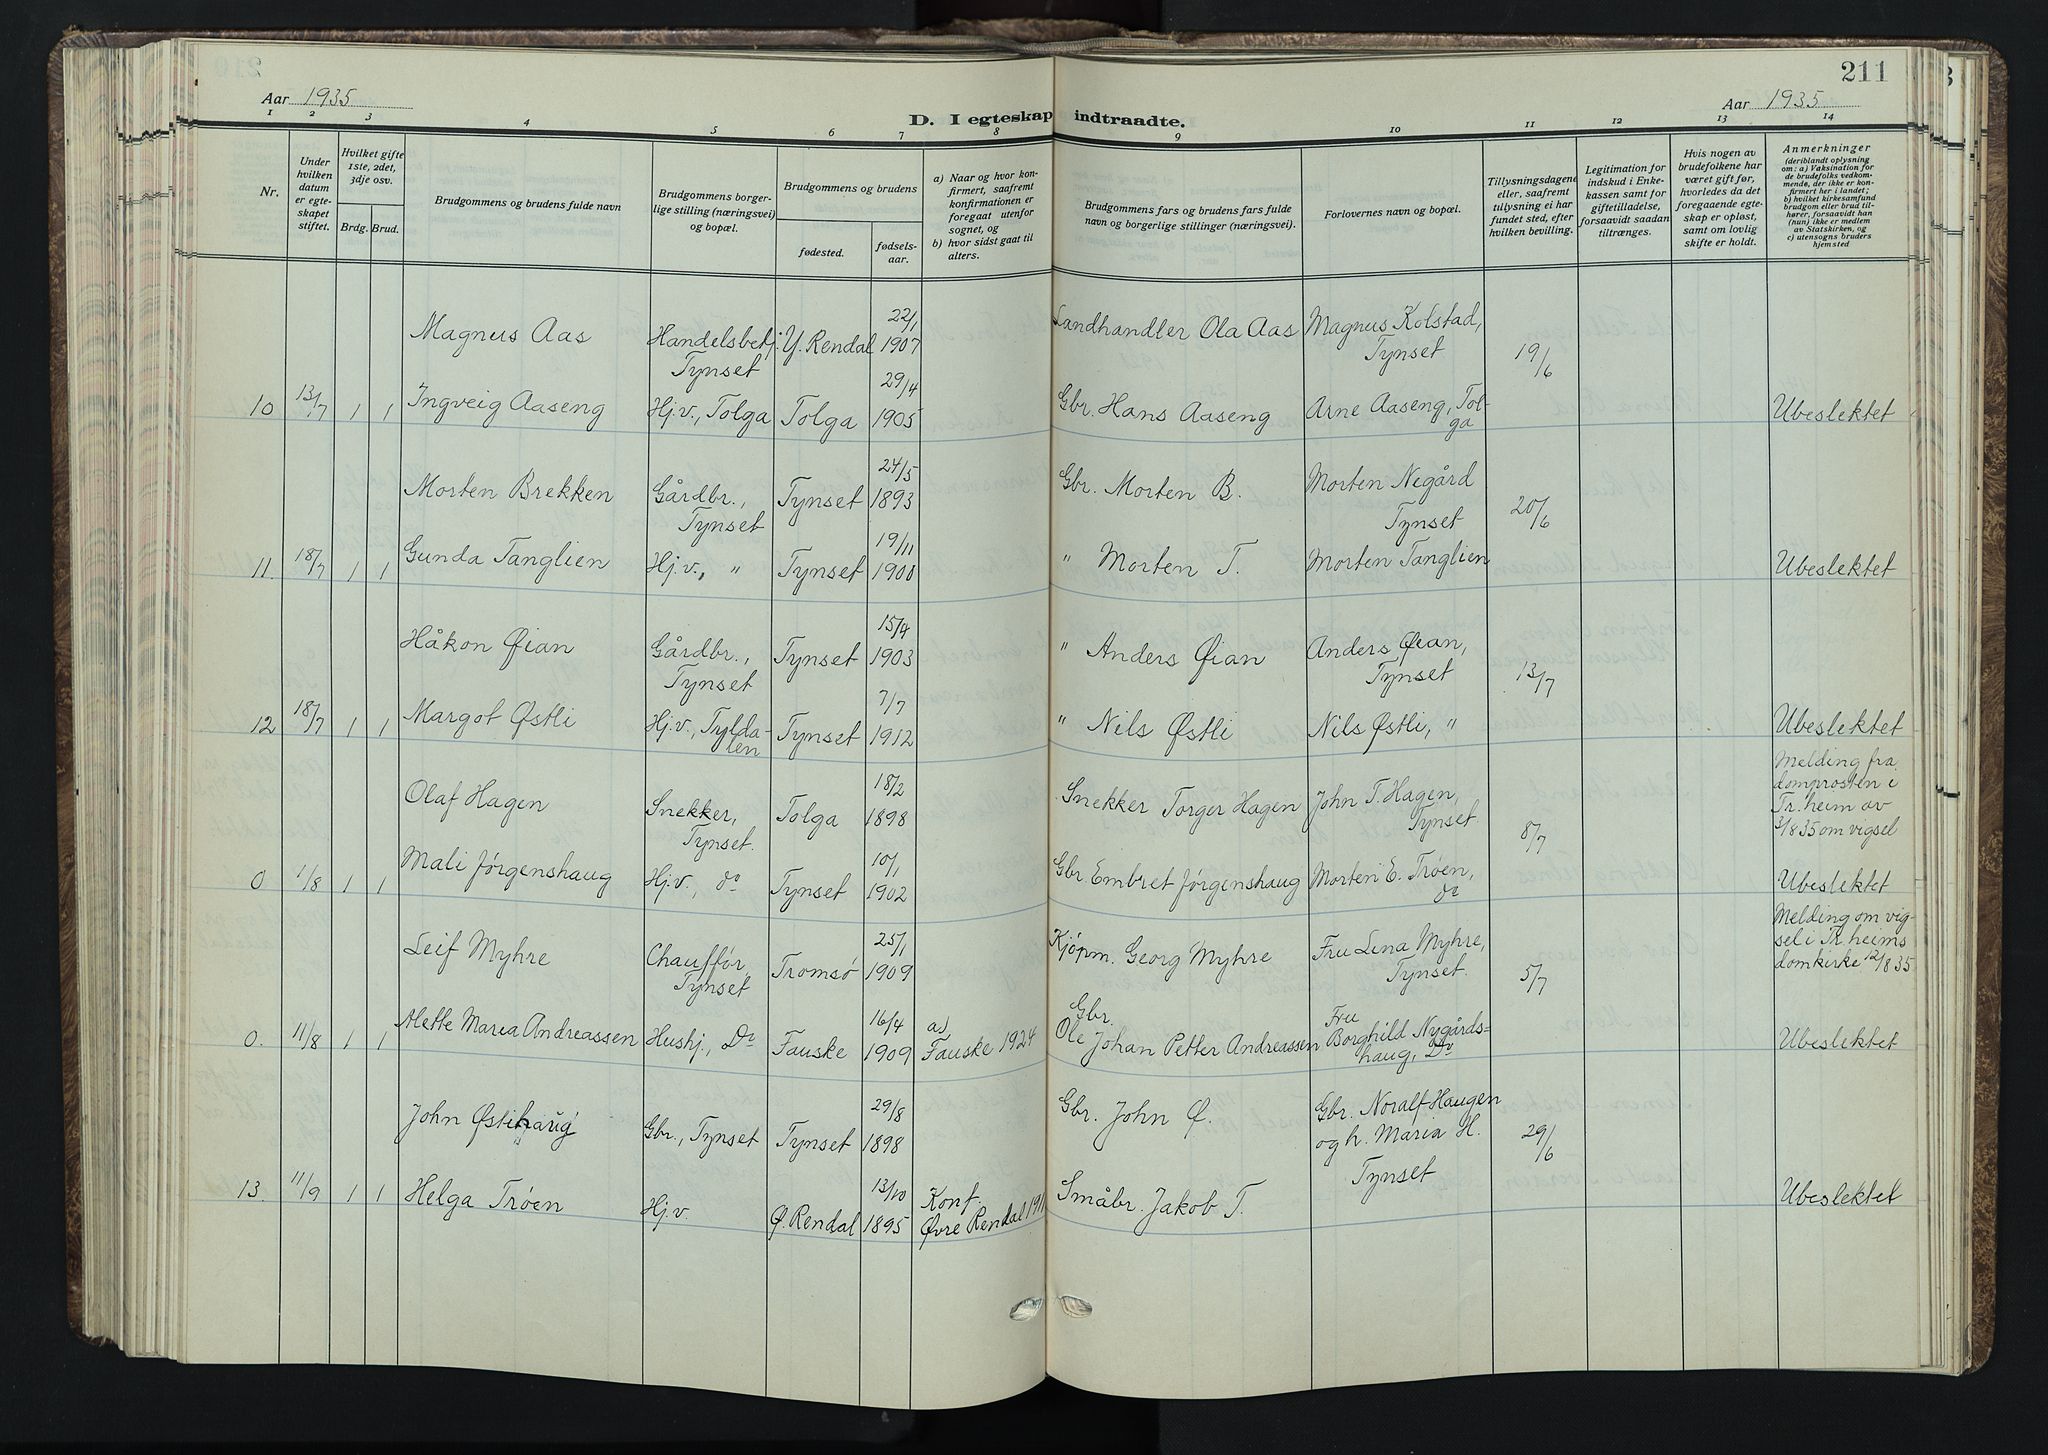 211
Aar 1935
Aar 1935
D. I egteskap indtraadte.
1 2 3 4 5 6 7 8 9 10 11 12 13 14
Nr.
Under
hvilken
datum
er egte-
skapet
stiftet.
Hvilket gifte
1ste, 2det,
3dje osv.
Brdg. Brud.
Brudgommens og brudens fulde navn
Brudgommens borger-
lige stilling (næringsvei)
og bopæl.
Brudgommens og brudens
fødested.
fødsels-
aar.
a) Naar og hvor kon-
firmert, saafremt
konfirmationen er
foregaat utenfor
sognet, og
b) hvor sidst gaat til
alters.
Brudgommens fars og brudens fars fulde
navn og borgerlige stillinger (næringsvei).
Forlovernes navn og bopæl.
Tillysningsdagene
eller, saafremt
tillysning ei har
fundet sted, efter
hvilken bevilling.
Legitimation for
indskud i Enke-
kassen samt for
giftetilladelse,
forsaavidt saadan
tiltrænges.
Hvis nogen av
brudefolkene har
været gift før,
hvorledes da det
foregaaende egte-
skap er opløst,
samt om lovlig
skifte er holdt.
Anmerkninger
(deriblandt oplysning
om: a) Vaksination for
de brudefolks vedkom-
mende, der ikke er kon-
firmert her i landet;
b) hvilket kirkesamfund
brudgom eller brud til-
hører, forsaavidt han
(hun) ikke er medlem
av Statskirken, og
c) utensogns bruders
hjemsted
Magnus Aas Handelsbetj. Y. Rendal 22/1 1907 Landhandler Ola Aas Magnus Kolstad,
Tynset Tynset 19/6
10 13/7 1 1 Ingveig Aaseng Hj.v., Tolga Tolga 29/4 1905 Gbr. Hans Aaseng Arne Aaseng, Tol-
ga Ubeslektet
Morten Brekken Gårdbr., Tynset 24/5 1893 Gbr. Morten B. Morten Negård
Tynset Tynset 20/6
11. 18/7 1 1 Gunda Tanglien Hj.v., " Tynset 19/11 1900 " Morten T. Morten Tanglien Ubeslektet
Håkon Øian Gårdbr., Tynset 15/4 1903 " Anders Øian Anders Øian,
Tynset Tynset 13/7
12 18/7 1 1 Margot Østli Hj.v., Tylda-
len Tynset 7/7 1912 " Nils Østli Nils Østli, " Ubeslektet
Olaf Hagen Snekker, Tolga 18/2 1898 Snekker Torger Hagen John T. Hagen,
Tynset. Tynset 8/7
Melding fra
domprosten i
Tr.heim av
3/8 35 om vigsel
0 1/8 1 1 Mali Jørgenshaug Hj.v., do Tynset 10/1 1902 Gbr. Embret Jørgenshaug Morten E. Trøen,
do Ubeslektet
Leif Myhre Chauffør, Tromsø 25/1 1909 Kjøpm. Georg Myhre Fru Lina Myhre,
Tynset Tynset. 5/7
Melding om vig-
sel i Tr.heims
domkirke 12/8 35
0. 11/8 1 1 Alette Maria Andreassen Hushj., Do Fauske 16/4 1909 a) Fauske 1924 Gbr.
Ole Johan Petter Andreassen Fru
Borghild Nygårds=
haug, Do Ubeslektet
John Østihaug Gbr., Tynset Tynset 29/8 1898 Gbr. John Ø. Gbr. Noralf Haugen
og h. Maria H.
Tynset 29/6
13. 11/9 1 1 Helga Trøen Hj.v. Ø. Rendal 13/10 1895 Konf.
Øvre Rendal Småbr. Jakob T. Ubeslektet